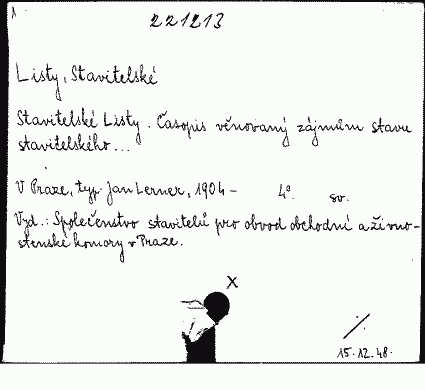 221213
Listy, Stavitelské
Stavitelské Listy. Časopis věnovaný zájmům stavu
stavitelského...
V Praze, typ. Jan Lerner, 1904 - 4°. sv.
Vyd.: Společenstvo stavitelů pro obvod obchodní a živno-
stenské komory v Praze.
X
15.12.48.